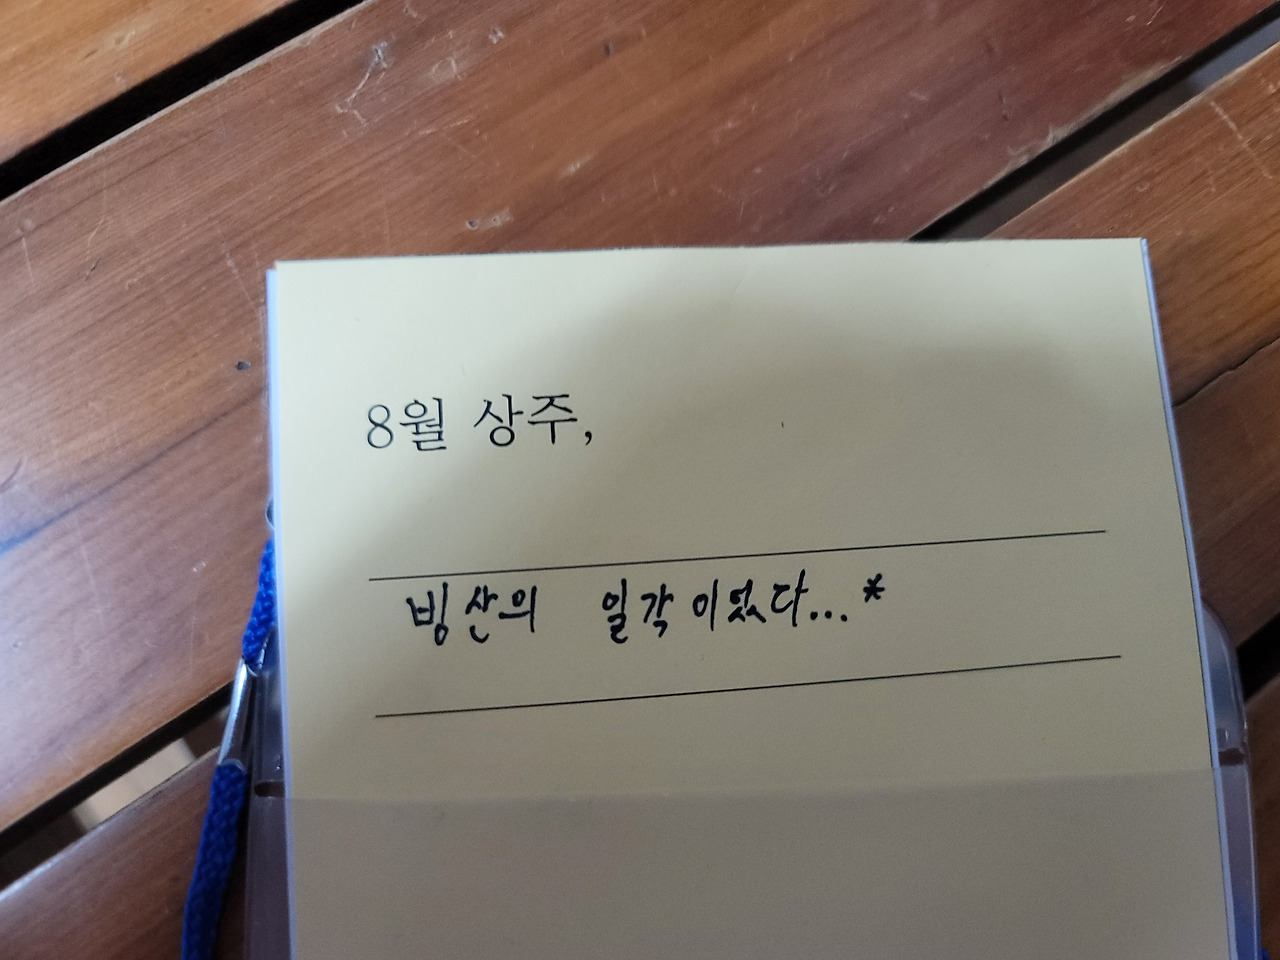 8월 상주,
빙산의 일각이었다...*